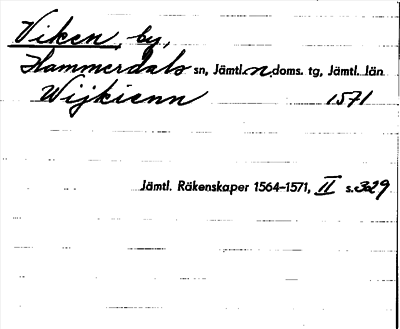 Viken, by,
Hammerdals sn, Jämtl. n. doms. tg, Jämtl. län
Wijkienn 1571
Jämtl. Räkenskaper 1564-1571, II s. 329